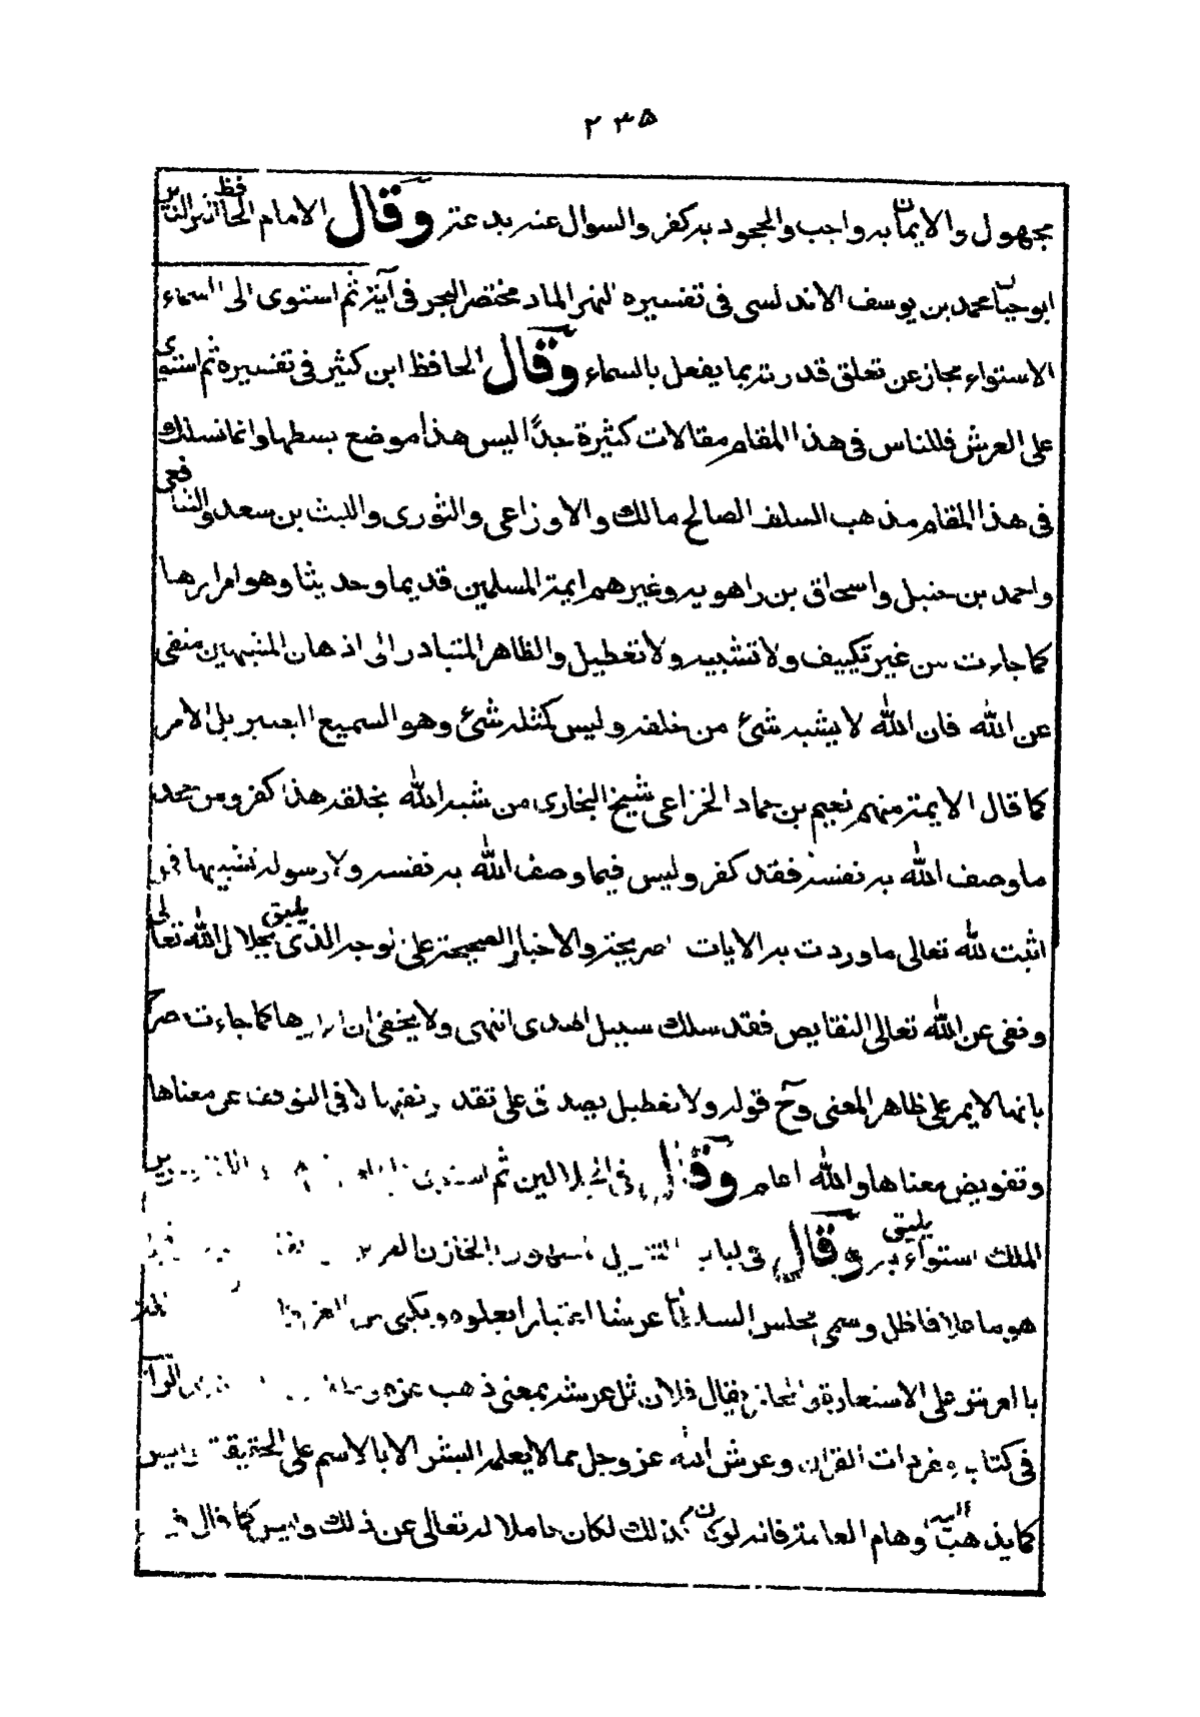 ۲۳۵
مجهول والايمان به واجب والجحود به كفر والسوال عنه بدعة وقال الامام الحافظ اثير الدين
ابوحيان محمد بن يوسف الاندلسى فى تفسيره النهر الماد مختصر البحر فى آية ثم استوى الى السماء
الاستواء مجاز عن تعلق قدرته بما يفعل بالسماء وقال الحافظ ابن كثير فى تفسيره ثم استوى
على العرش فللناس فى هذا المقام مقالات كثيرة جدًا ليس هذا موضع بسطها وانما نسلك
فى هذا المقام مذهب السلف الصالح مالك والاوزاعى والثورى والليث بن سعد والشافعى
واحمد بن حنبل واسحاق بن راهويه وغيرهم ايمة المسلمين قديما وحديثا وهو امرارها
كما جاءت من غير تكييف ولا تشبيه ولا تعطيل والظاهر المتبادر الى اذهان المشبهين منفى
عن الله فان الله لا يشبه شئ من خلقه وليس كمثله شئ وهو السميع البصير بل الامر
كما قال الايمة منهم نعيم بن حماد الخزاعى شيخ البخارى من شبه الله بخلقه هذا كفر ومن جحد
ما وصف الله به نفسه فقد كفر وليس فيما وصف الله به نفسه ولا رسوله تشبيها فمن
اثبت لله تعالى ما وردت به الايات الصريحة والاخبار الصحيحة على توجه الذى يليق بجلال الله تعالى
ونفى عن الله تعالى النقايص فقد سلك سبيل الهدى انتهى ولا يخفى ان امرارها كما جاءت صرح
بانها لا يمر على ظاهر المعنى وح قوله ولا تعطيل يصدق على تقد نفيها لا فى التوقف عن معناها
وتفويض معناها والله اعلم وقال فى الجلالين ثم استوى
الملك استواء يليق به وقال فى لباب التنزيل الخازن العرش
هو ما علا فاظل وسمى مجلس السلطان عرشا اعتبارا بعلوه ويكنى عن العز
بالعرش على الاستعارة والمجاز يقال فلان ثل عرشه بمعنى ذهب عزه
فى كتابه مفردات القران وعرش الله عز وجل مما لا يعلمه البشر الا بالاسم على الحقيقة وليس
كما يذهب اليه اوهام العامة فانه لو كان كذلك لكان حاملا له تعالى عن ذلك وليس كما قال